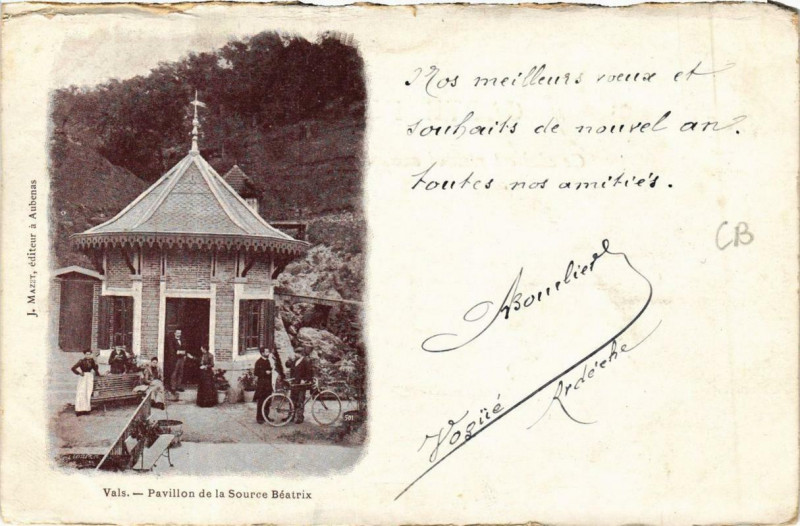 J. MAZET, éditeur à Aubenas
Nos meilleurs voeux et
souhaits de nouvel an.
toutes nos amitiés.
CB
ABoulier
Vogüé
Ardèche
501
Vals. — Pavillon de la Source Béatrix